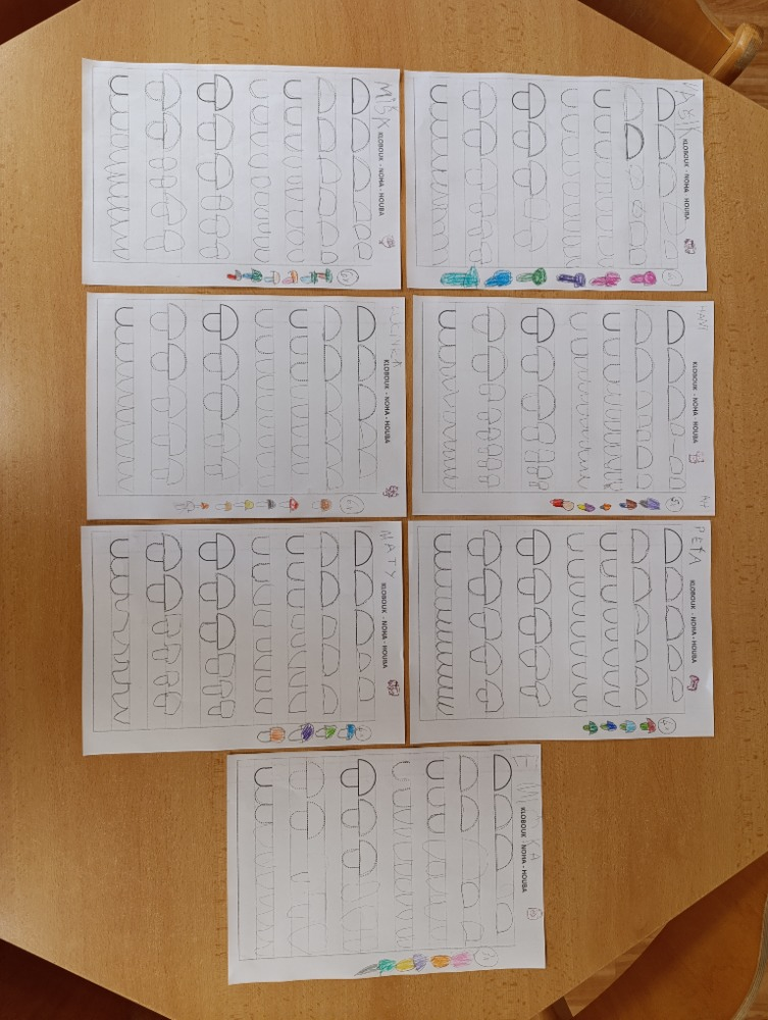 MÍŠA
KLOBOUK - NOHA - HOUBA
VAŠÍK
KLOBOUK - NOHA - HOUBA
KLOBOUK - NOHA - HOUBA
HANI
KLOBOUK - NOHA - HOUBA
MATY
KLOBOUK - NOHA - HOUBA
PEŤA
KLOBOUK - NOHA - HOUBA
KLOBOUK - NOHA - HOUBA